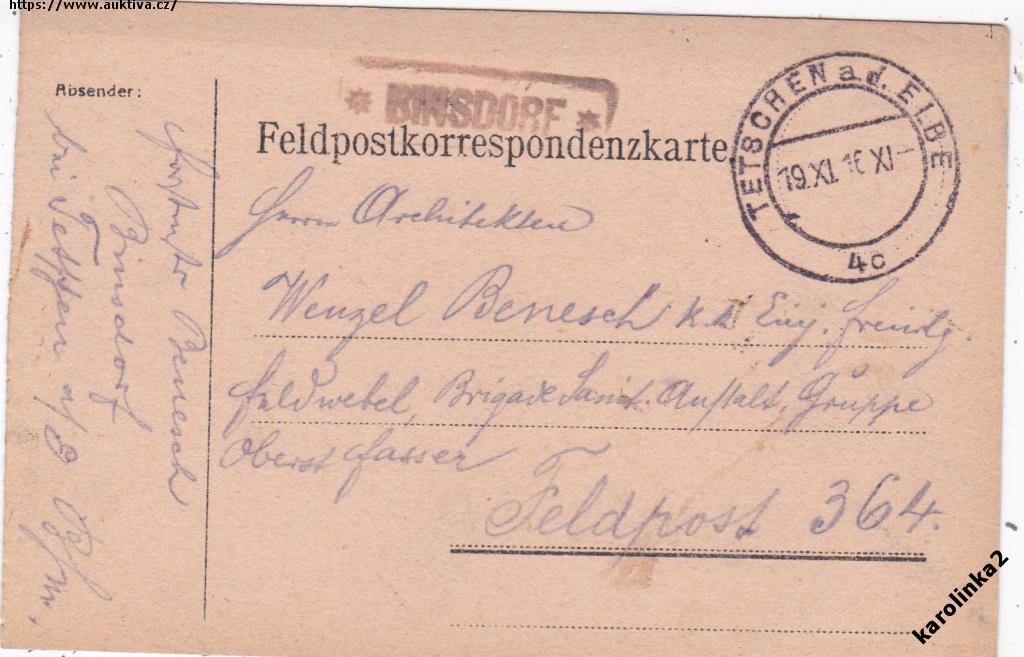 https://www.auktiva.cz/
* BINSDORF *
TETSCHEN a.d. ELBE
19.XI.16 XI-
4c
Feldpostkorrespondenzkarte
Absender:
Benesch
Binsdorf
bei Tetschen a/E
Herrn Architekten
Wenzel Benesch k.k. Einj. freiwlg.
Feldwebel, Brigade Sanit. Anstalt, Gruppe
Oberst Fasser
Feldpost 364.
karolinka2